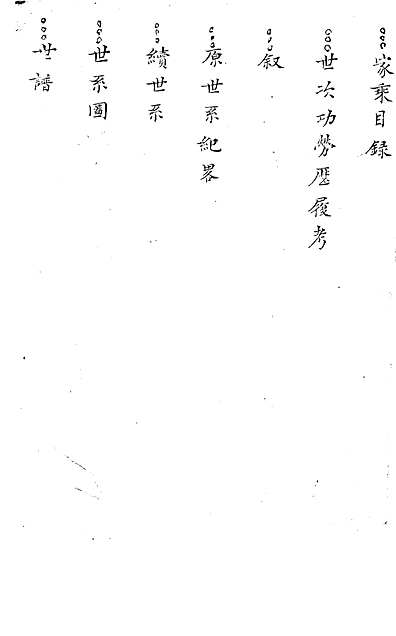 家乘目録
世次功勞歷履考
叙
原世系紀畧
續世系
世系圖
世譜